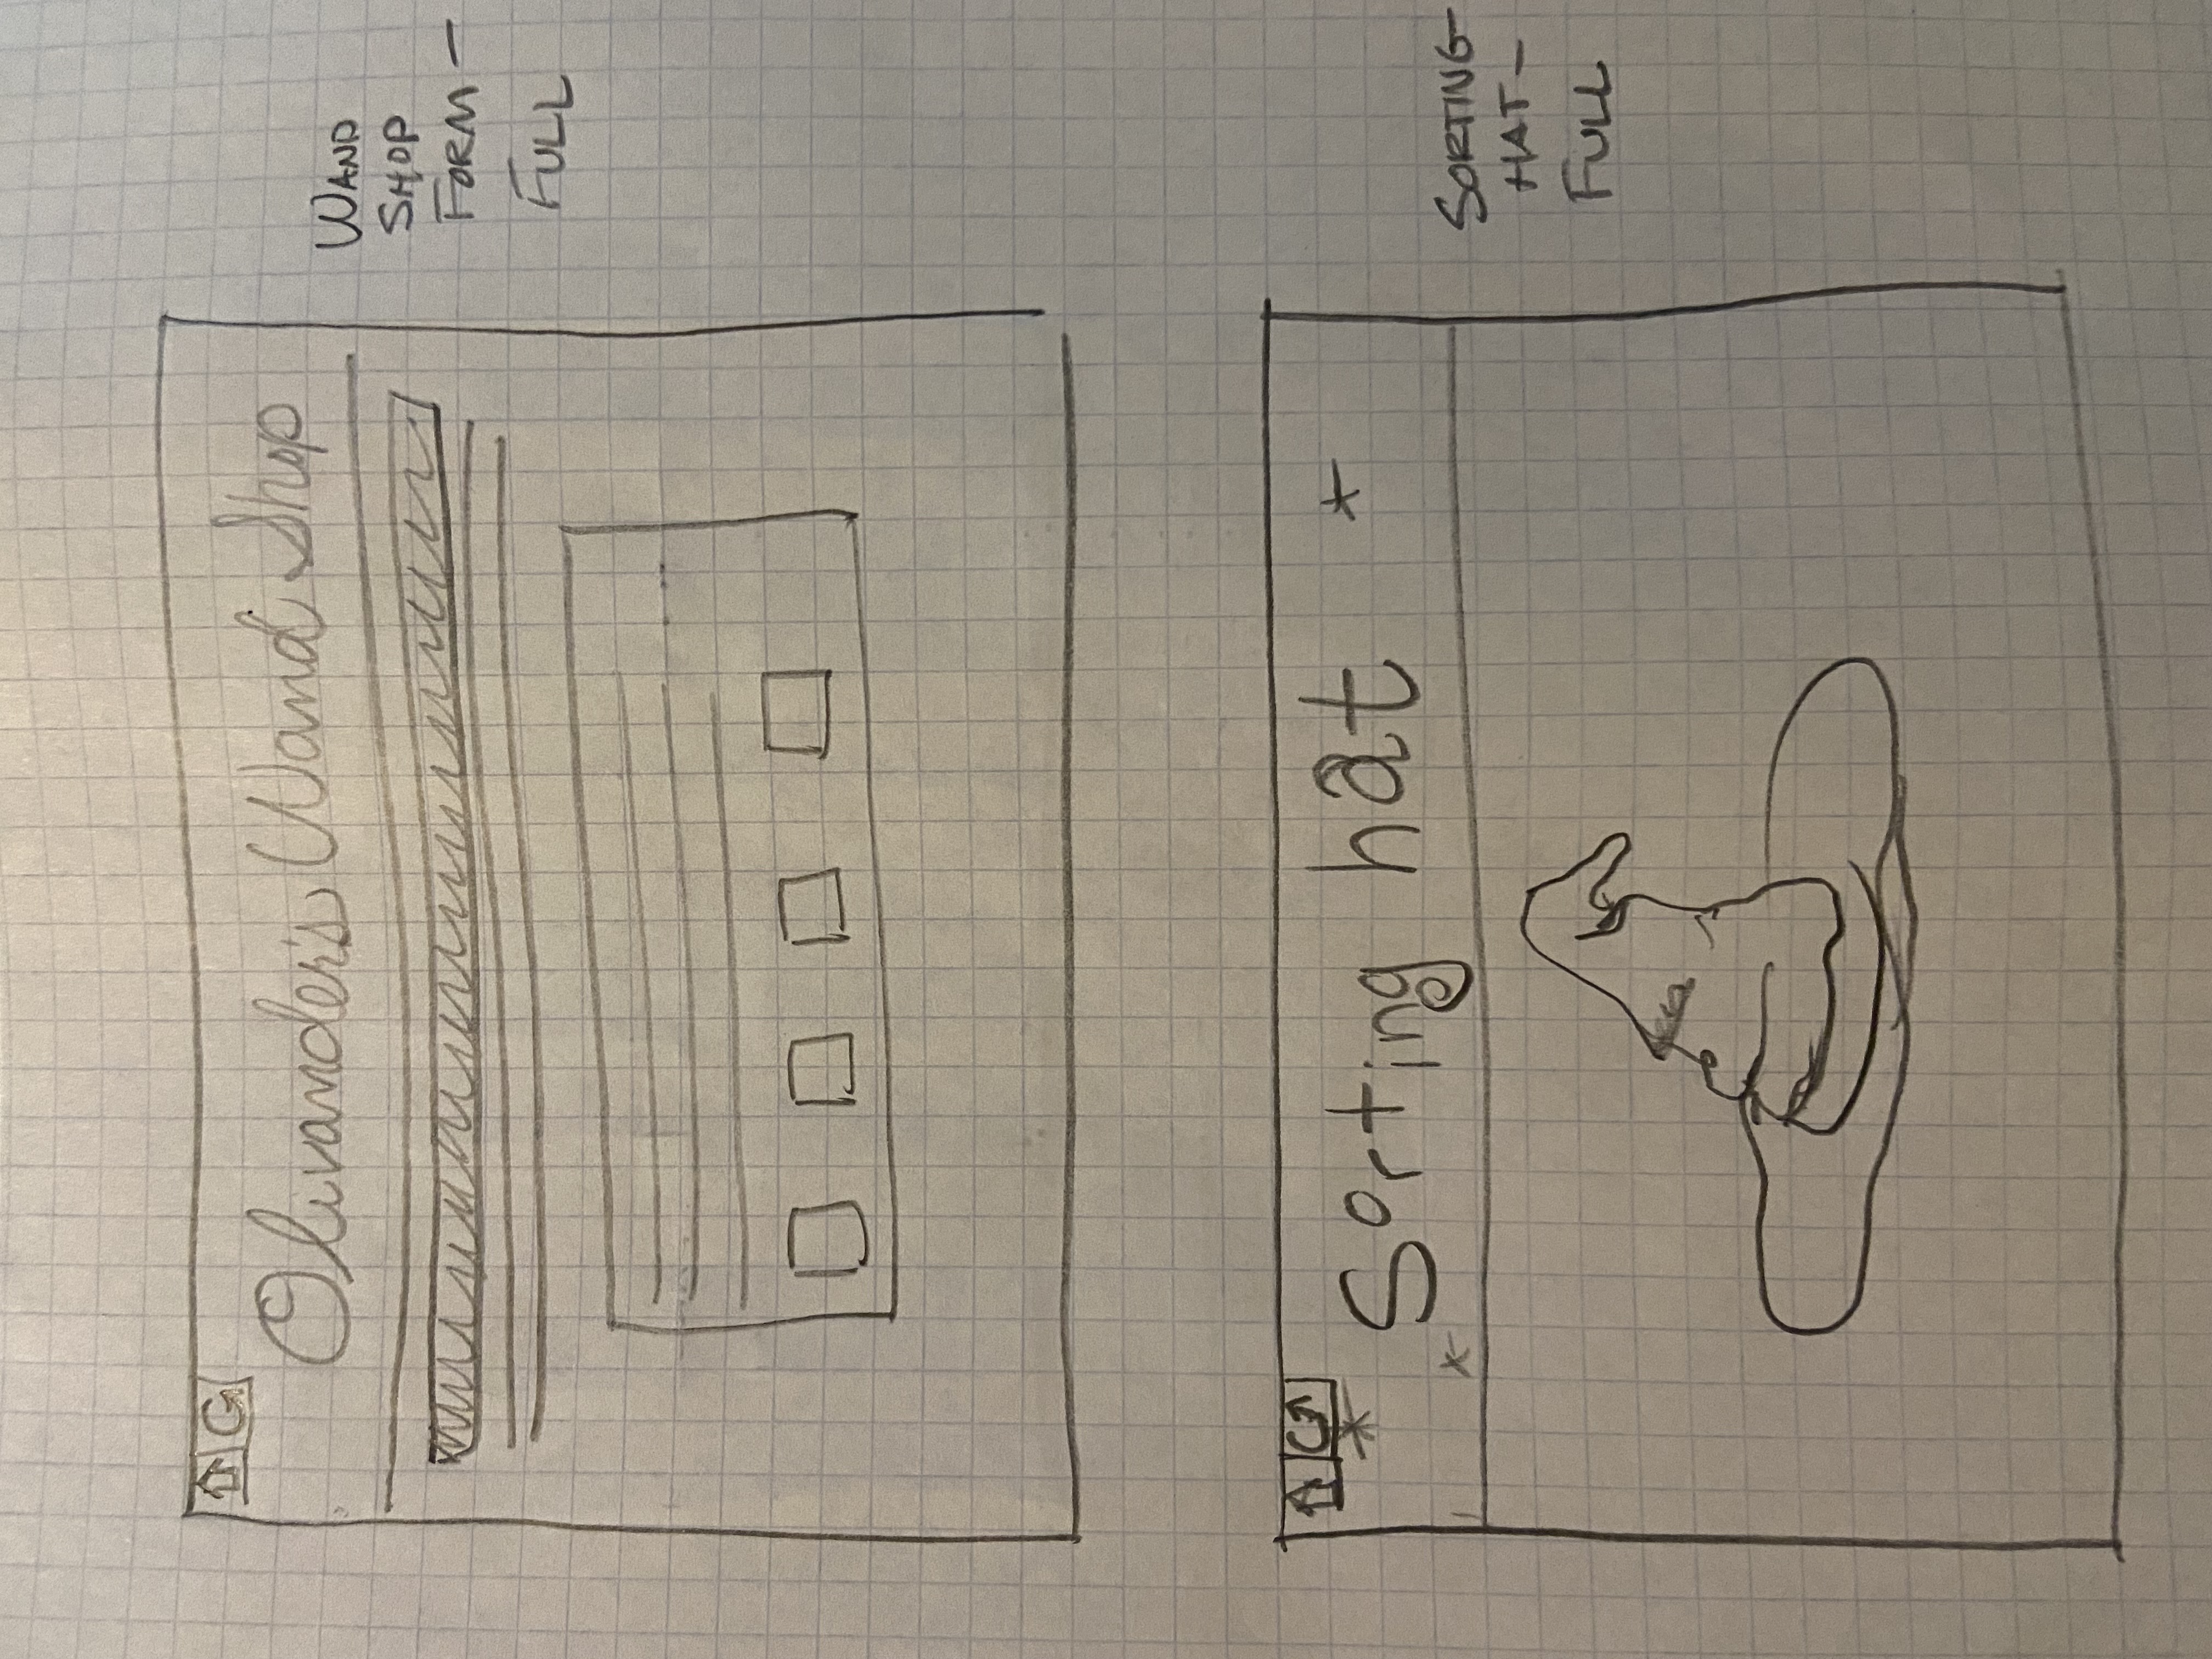 Olivander's Wand Shop
WAND
SHOP
FORM -
FULL
Sorting hat
SORTING-
HAT -
FULL